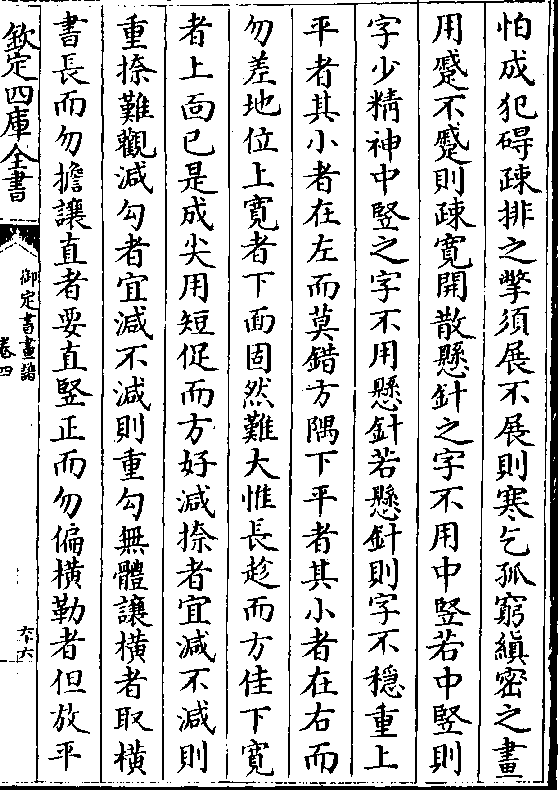 怕成犯碍疎排之撆須展不展則寒乞孤窮縝密之畫
用蹙不蹙則疎寛開散懸針之字不用中竪若中竪則
字少精神中竪之字不用懸針若懸針則字不穩重上
平者其小者在左而莫錯方隅下平者其小者在右而
勿差地位上寛者下面固然難大惟長趁而方佳下寛
者上面已是成尖用短促而方好減捺者宜減不減則
重捺難觀減勾者宜減不減則重勾無體讓横者取横
書長而勿擔讓直者要直竪正而勿偏横勒者但放平
欽定四庫全書
御定書畫譜
卷四
六十六